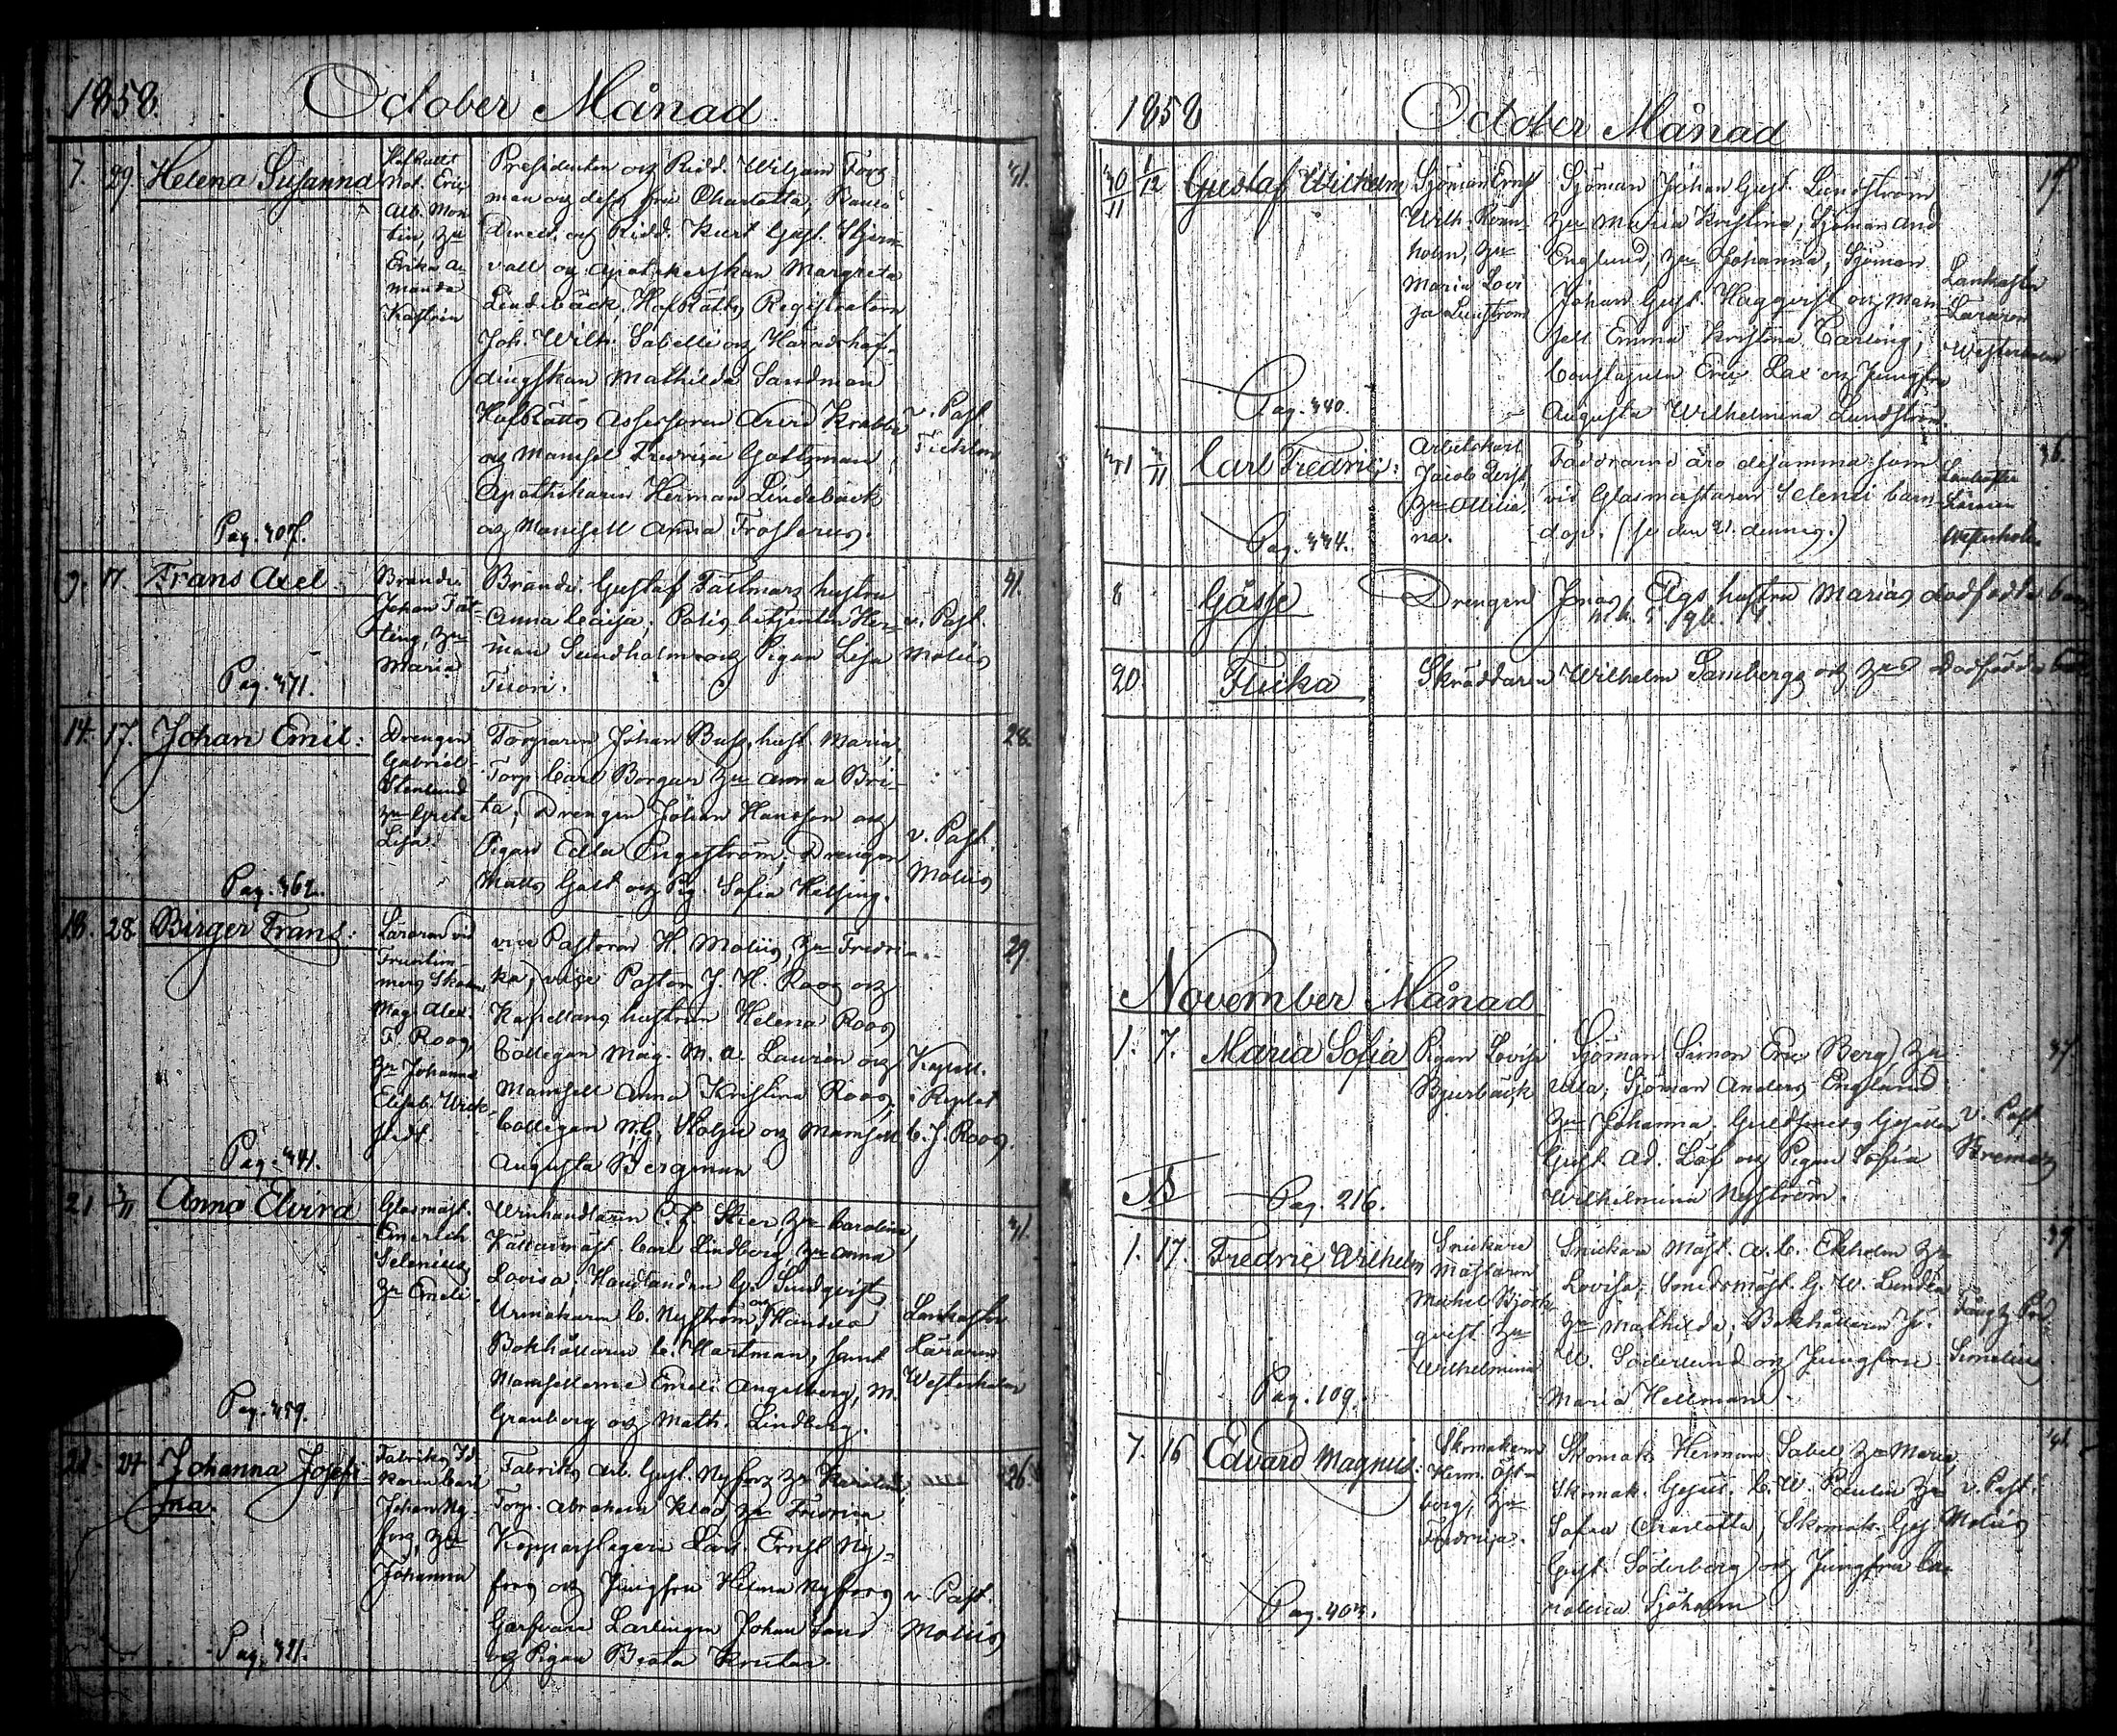 1858. October Månad
7. 29 Helena Susanna
HofRätts
Not. Eric
Alb. Mon
tin, hu
Erika A
manda
Kastrén
Presidenten och Ridd. Wiljam Fors
man och dess fru Charlotta,
Direct. och Ridd. Kurt Gust. Stjern
vall och Apotekerskan Margreta
Lindebäck, HofRätts Registratorn
Joh. Wilh. Sabelli och Häradshöf
dingskan Mathilda Sandman
HofRätts Assessoren Arvid Krabbe
och Mamsel Fredrica Gottzman
Apothekaren Herman Lindebäck
och Mamsell Anna Frosterus.
v. Past.
41.
Pag. 407.
9. 17. Frans Axel
Johan Fält
ting, hu
Maria
Gustaf Fältmars hustru
Anna Caisa; Polis betjenten Her
man Sundholm och Pigan Lisa
Tuori.
v. Past.
Molüs
41.
Pag. 371.
14. 17. Johan Emil:
Drengen
Gabriel
Stenlund
hu Greta
Lisa.
Torparen Johan Buss, hust. Maria,
Torp. Carl Borgar hu Anna Bri-
ta; Drengen Johan Hansson och
Pigan Edla Engström; Drengen
Matts Galt och Pig. Sofia Helsing.
v. Past.
Molüs
28.
Pag. 362.
18. 28 Birger Frans:
Läraren vid
Fruntim
mers Skolan
Mag. Alex.
F. Roos,
hu Johanna
Elisab. Wick
stedt.
vice Pastorn H. Molüs, hu Fredri
ka, vice Pastor J. H. Roos och
Kapellans hustrun Helena Roos
Collegan Mag. M. A. Laurén och
Mamsell Anna Kristina Roos,
Collegan Mg. Stolpe och Mamsell
Augusta Bergman
Kapell.
Replot
C. J. Roos.
29.
Pag. 341.
21 2/11 Anna Elvira
Glasmäst.
Emerich
Selenius
hu Emeli.
Winhandlaren C. F. Stier, hu Carolina,
Källarmäst. Carl Lindberg, hu Anna
Lovisa; Handlanden G. Sundqvist
Urmakaren C. Nyström, och
Bokhållaren C. Hartman, samt
Mamsellerne Emeli Angelberg, M.
Granberg och Math. Lindberg.
Lankaster
Läraren
Westerholm
41.
Pag. 459.
21 24 Johanna Josefi
na.
Fabriks Id
karen Carl
Johan Ny
fors, hu
Johanna
Fabriks Arb. Gust. Nyfors hu Karolina,
Torp. Abraham Klas hu Fredrica
Kopparslagare Lärl. Ernst Ny-
fors och Jungfru Helena Nyfors
Garfvare Lärlingen Johan Sand
och Pigan Beata Krutas.
v. Past.
Molüs
26.
Pag. 421.
1858 October Månad
30/11 1/12 Gustaf Wilhelm
Sjöman Ernst
Wilh. Rosen
holm, hu
Maria Lovi
sa Lunström
Sjöman Johan Gust. Lundström
hu Maria Kristina, Sjöman And
Englund, hu Johanna, Sjöman
Johan Gust. Haggqvist och Mam
sell Emma Kristina Carling,
Constapeln Eric Lax och Jungfru
Augusta Wilhelmina Lundström.
Lankaster
Läraren
Westerholm
17.
Pag. 340.
2/11 Carl Fredric:
Arbetskarl
Jacob
hu Ottilia
na.
Faddrarne äro desamma som
vid Glasmästaren Selenii barn
dop. (se den 21. dennes.)
Lankaster
Läraren
Westerholm
36.
Pag. 334.
8 Gåsse Drengen Jonas hustru Marias dödfödda barn
20. Flicka Skräddaren Wilhelm Sambergs och hu Dödfödda
November Månad
1. 7. Maria Sofia
Pigan Lovisa
Bjurbäck
Sjöman Simon Eric Berg, hu
Ulla; Sjöman Anders Englund
hu Johanna. Guldsmeds Gesällen
Gust. Ad. Löf och Pigan Sofia
Wilhelmina Nyström.
v. Past
Bremer
37.
Pag. 216.
1. 17. Fredric Wilhelm
Snickare
Mästaren
Michel Björk
qvist hu
Wilhelmina
Snickare Mäst. A. C. Ekholm hu
Lovisa. Smidsmäst. G. W. Lindén
hu Mathilda; Bokhållaren J.
W. Söderlund och Jungfru
Maria Hellman.
Simelius
39
Pag. 109.
7. 16 Edvard Magnus:
Skomakaren
Herm. Öst-
berg, hu
Fredrica.
Skomak. Herman Sabel, hu Maria,
Skomak. Gesäl. C. W. Paulin hu
Sofia Charlotta, Skomak. Ges.
Gust. Söderberg och Jungfru Ca
rolina Sjöholm
v. Past.
Molüs
41.
Pag. 403.